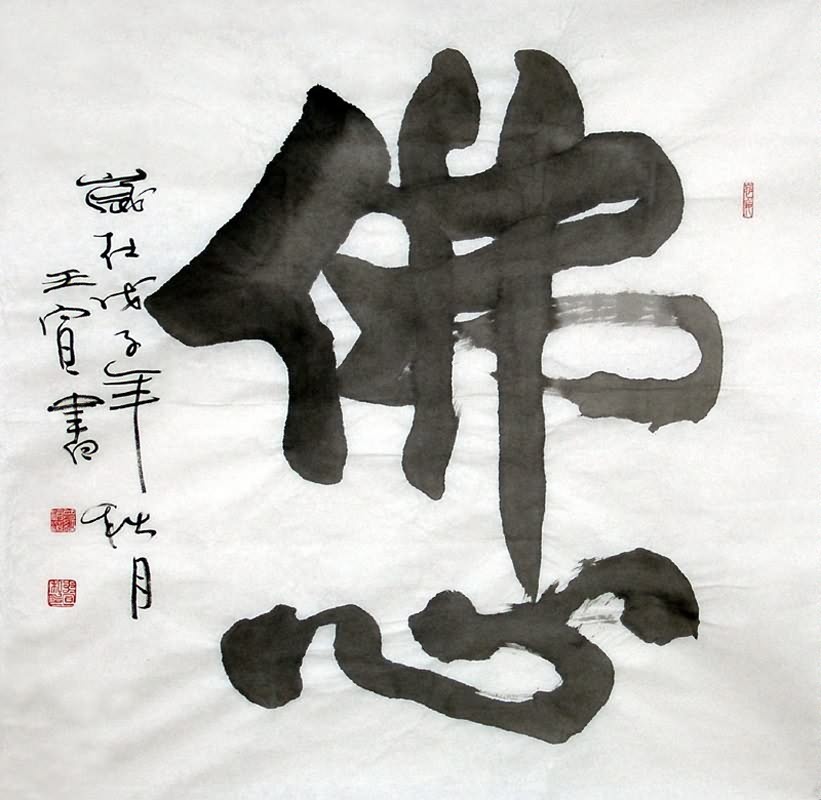 佛心
歲在戊子年秋月
王寅書